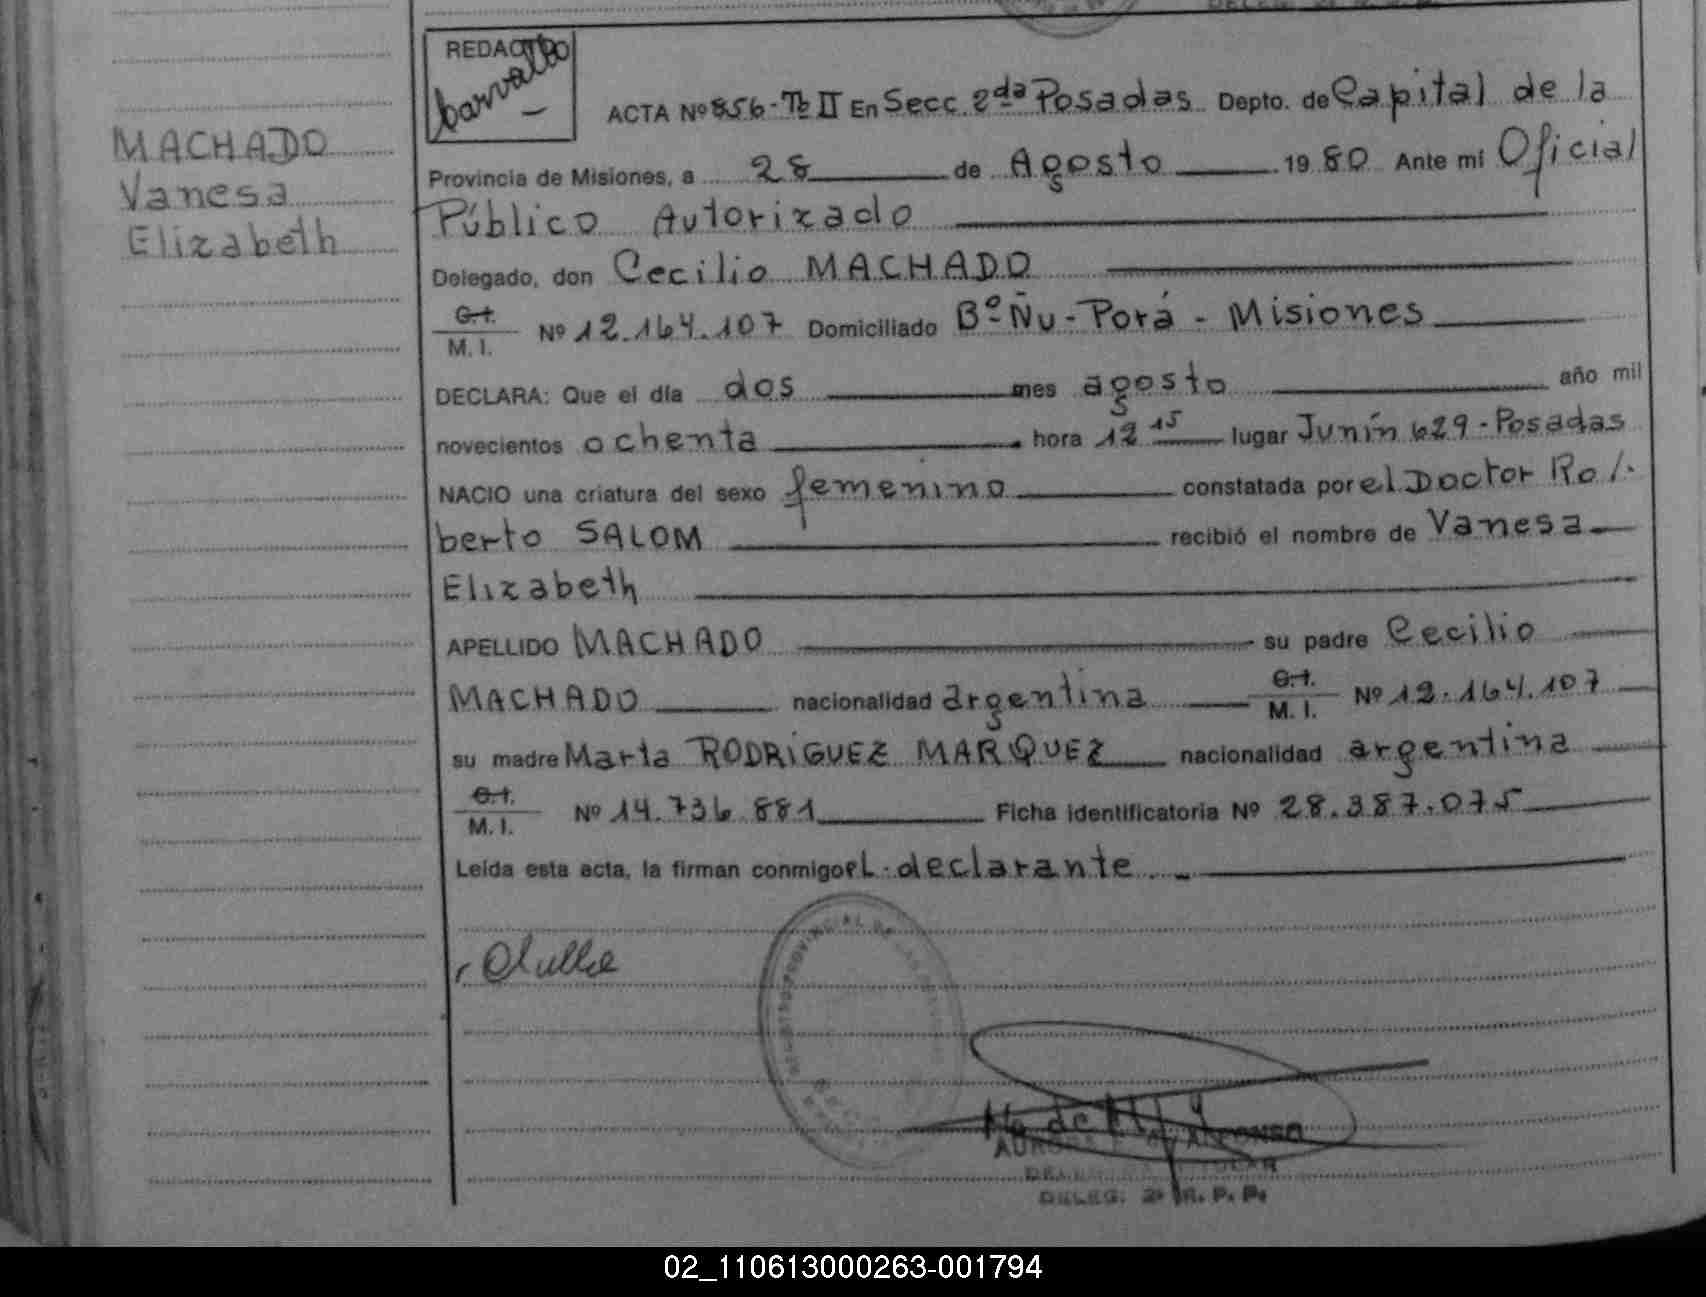 MACHADO
Vanesa
Elizabeth
REDACTO
ACTA Nº 856-Tº II En Secc. 2da Posadas Depto. de Capital de la
Provincia de Misiones, a 28 de Agosto 19 80 Ante mi Oficial
Público Autorizado
Delegado, don Cecilio MACHADO
C.I.
M. I. Nº 12.164.107 Domiciliado Bº Ñu-Porá - Misiones
DECLARA: Que el día dos mes agosto año mil
novecientos ochenta hora 12 15 lugar Junín 629 - Posadas
NACIO una criatura del sexo femenino constatada por el Doctor Ro/.
berto SALOM recibió el nombre de Vanesa
Elizabeth
APELLIDO MACHADO su padre Cecilio
MACHADO nacionalidad argentina C.I. M. I. Nº 12.164.107
su madre María RODRÍGUEZ MARQUEZ nacionalidad argentina
C.I.
M. I. Nº 14.736.881 Ficha identificatoria Nº 28.387.075
Leída esta acta, la firman conmigo el declarante.-
DELEG. 2ª R. P. P.
02_110613000263-001794